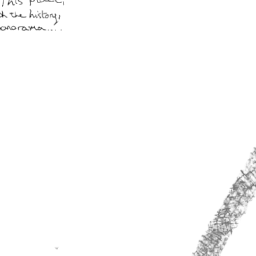 This place,
the history,
panorama....